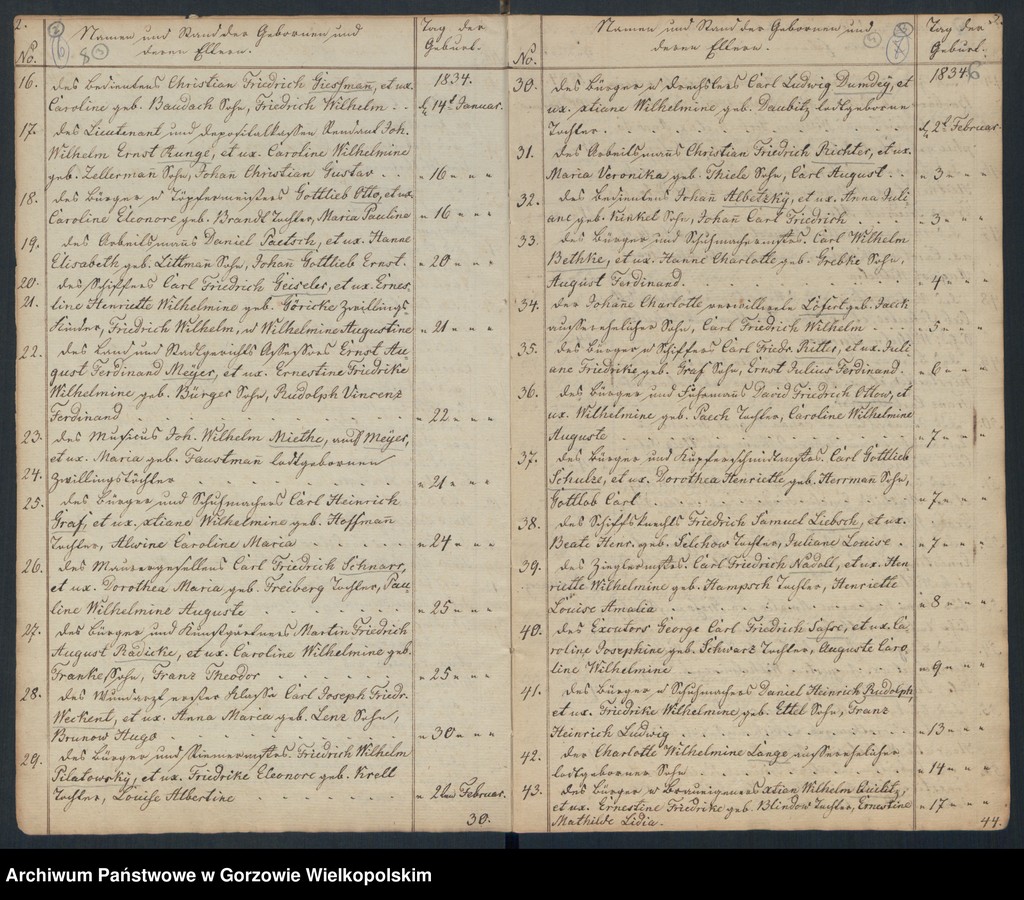 2.
Namen und Stand der Gebornen und
deren Eltern.
Tag der
Geburt.
No.
1834.
16. des Bedienten Christian Friedrich Giesmañ, et ux.
Caroline geb. Baudach Sohn, Friedrich Wilhelm . . d. 14t Januar.
17. des Lieutenant und Depositalkassen Rendant Joh.
Wilhelm Ernst Runge, et ux. Caroline Wilhelmine
geb. Zellermañ Sohn, Johañ Christian Gustav . . " 16 " " "
18. des Bürger u Töpfermeisters Gottlieb Otto, et ux.
Caroline Eleonore geb. Brandt Tochter, Maria Pauline " 16 " " "
19. des Arbeitsmañs Daniel Paetsch, et ux. Hanne
Elisabeth geb. Littmañ Sohn, Johañ Gottlieb Ernst. " 20 " " "
20. des Schiffers Carl Friedrich Geiseler, et ux. Ernes
21. tine Henriette Wilhelmine geb. Göricke Zwillings-
Kinder, Friedrich Wilhelm, u Wilhelmine Augustine " 21 " " "
22. des Land und Stadtgerichts Assessors Ernst Au-
gust Ferdinand Meyer, et ux. Ernestine Friedrike
Wilhelmine geb. Bürger Sohn, Rudolph Vincenz
Ferdinand . . . " 22 " " "
23. des Musicus Joh. Wilhelm Miethe, auch Meyer,
et ux. Maria geb. Faustmañ todtgebornen
24. Zwillingstöchter . . . " 21 " " "
25. des Bürger und Schuhmachers Carl Heinrich
Graf, et ux. xtiane Wilhelmine geb. Hoffmañ
Tochter, Alwine Caroline Maria . . . " 24 " " "
26. des Maurergesellen Carl Friedrich Schnarr,
et ux. Dorothea Maria geb. Freiberg Tochter, Pau-
line Wilhelmine Auguste . . . " 25 " " "
27. des Bürger und Kunstgärtners Martin Friedrich
August Radicke, et ux. Caroline Wilhelmine geb.
Franke Sohn, Franz Theodor . . . " 25 " " "
28. des Wundarzt erster Klasse Carl Joseph Friedr.
Weckent, et ux. Anna Maria geb. Lenz Sohn,
Brunow Hugo . . . " 30 " " "
29. des Bürger und Riemermstrs. Friedrich Wilhelm
Pilatowsky, et ux. Friedrike Eleonore geb. Krell
Tochter, Louise Albertine . . . " 2ten Februar.
30.
Namen und Stand der Gebornen und
deren Eltern.
Tag der
Geburt.
No.
1834.
30. des Bürger u Drechslers Carl Ludwig Dumdey, et
ux. xtiane Wilhelmine geb. Daubitz todtgeborne
Tochter. . . . d. 2t Februar.
31. des Arbeitsmañs Christian Friedrich Richter, et ux.
Maria Veronika geb. Thiele Sohn, Carl August . . " 3 " " "
32. des Bedienten Johañ Albetzky, et ux. Anna Juli
ane geb. Kunkel Sohn, Johañ Carl Friedrich . . . " 3 " " "
33. des Bürger und Schuhmachermstrs. Carl Wilhelm
Bethke, et ux. Hanne Charlotte geb. Grebke Sohn,
August Ferdinand . . . " 4 " " "
34. der Johañe Charlotte verwittwete geb.
ausserehelicher Sohn, Carl Friedrich Wilhelm . . " 5 " " "
35. des Bürger u Schiffers Carl Friedr. Rittler, et ux. Juli
ane Friedrike geb. Graf Sohn, Ernst Julius Ferdinand. " 6 " " "
36. des Bürger und Fuhrmañ David Friedrich Ottow, et
ux. Wilhelmine geb. Paech Tochter, Caroline Wilhelmine
Auguste . . . " 7 " " "
37. des Bürger und Kupferschmidtmstrs. Carl Gottlieb
Schulze, et ux. Dorothea Henriette geb. Herrmañ Sohn,
Gottlob Carl . . . " 7 " " "
38. des Schiffsknechts Friedrich Samuel Liebsch, et ux.
Beate Henr. geb. Selchow Tochter, Juliane Louise . " 7 " " "
39. des Zieglermstrs. Carl Friedrich Nadoll, et ux. Hen
riette Wilhelmine geb. Hampsch Tochter, Henriette
Louise Amalia . . . " 8 " " "
40. des Excutors George Carl Friedrich Sasse, et ux. Ca
roline Josephine geb. Schwarz Tochter, Auguste Caro
line Wilhelmine . . . " 9 " " "
41. des Bürger u Schuhmachers Daniel Heinrich Rudolph,
et ux. Friedrike Wilhelmine geb. Ettel Sohn, Franz
Heinrich Ludwig . . . " 13 " " "
42. der Charlotte Wilhelmine Lange ausserehelicher
todtgeborner Sohn . . . " 14 " " "
43. des Bürger u Braueigeners xtian Wilhelm Quilitz,
et ux. Ernestine Friedrike geb. Blindow Tochter, Ernestine " 17 " " "
Mathilde Lidia.
44.
Archiwum Państwowe w Gorzowie Wielkopolskim